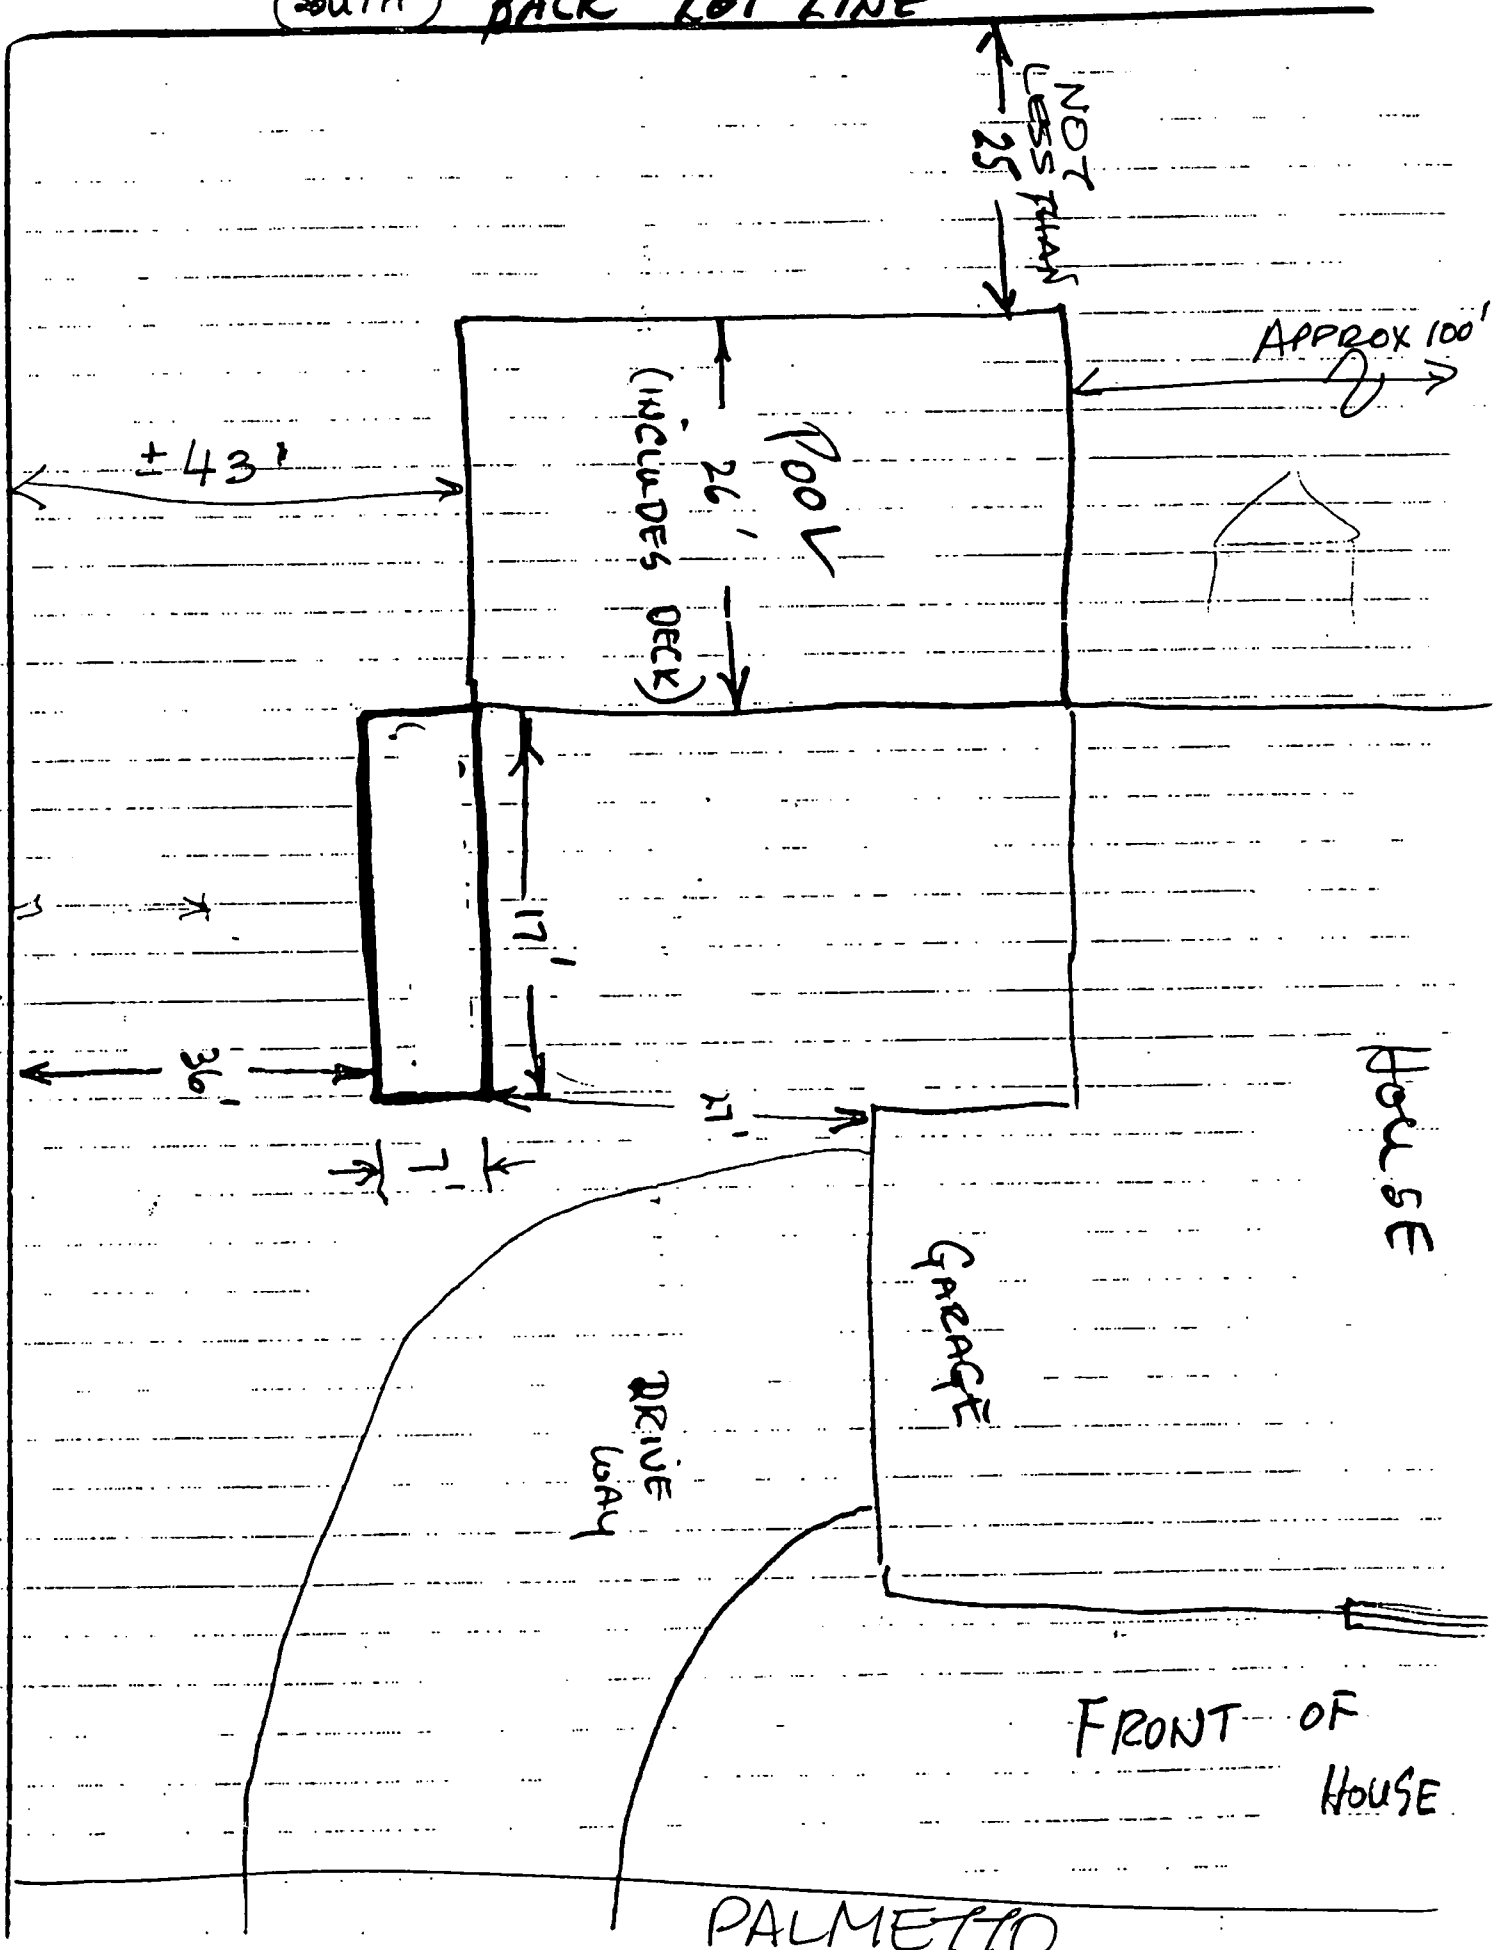 (SOUTH) BACK LOT LINE
NOT
LESS THAN
25
APPROX 100'
± 43'
POOL
26'
(INCLUDES DECK)
17'
36'
27'
7'
HOUSE
GARAGE
DRIVE
WAY
FRONT OF
HOUSE
PALMETTO